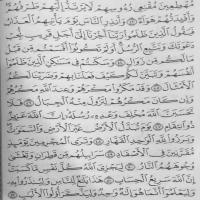 مُهْطِعِينَ مُقْنِعِي رُءُوسِهِمْ لَا يَرْتَدُّ إِلَيْهِمْ طَرْفُهُمْ
وَأَفْـِٔدَتُهُمْ هَوَآءٌ ٤٣ وَأَنذِرِ ٱلنَّاسَ يَوْمَ يَأْتِيهِمُ ٱلْعَذَابُ
فَيَقُولُ ٱلَّذِينَ ظَلَمُوا۟ رَبَّنَآ أَخِّرْنَآ إِلَىٰٓ أَجَلٍ قَرِيبٍ نُّجِبْ
دَعْوَتَكَ وَنَتَّبِعِ ٱلرُّسُلَ أَوَلَمْ تَكُونُوٓا۟ أَقْسَمْتُم مِّن قَبْلُ
مَا لَكُم مِّن زَوَالٍ ٤٤ وَسَكَنتُمْ فِي مَسَٰكِنِ ٱلَّذِينَ ظَلَمُوٓا۟
أَنفُسَهُمْ وَتَبَيَّنَ لَكُمْ كَيْفَ فَعَلْنَا بِهِمْ وَضَرَبْنَا لَكُمُ
ٱلْأَمْثَالَ ٤٥ وَقَدْ مَكَرُوا۟ مَكْرَهُمْ وَعِندَ ٱللَّهِ مَكْرُهُمْ
وَإِن كَانَ مَكْرُهُمْ لِتَزُولَ مِنْهُ ٱلْجِبَالُ ٤٦ فَلَا
تَحْسَبَنَّ ٱللَّهَ مُخْلِفَ وَعْدِهِۦ رُسُلَهُۥٓ إِنَّ ٱللَّهَ عَزِيزٌ
ذُو ٱنتِقَامٍ ٤٧ يَوْمَ تُبَدَّلُ ٱلْأَرْضُ غَيْرَ ٱلْأَرْضِ وَٱلسَّمَٰوَٰتُ
وَبَرَزُوا۟ لِلَّهِ ٱلْوَٰحِدِ ٱلْقَهَّارِ ٤٨ وَتَرَى ٱلْمُجْرِمِينَ يَوْمَئِذٍ
مُّقَرَّنِينَ فِي ٱلْأَصْفَادِ ٤٩ سَرَابِيلُهُم مِّن قَطِرَانٍ وَتَغْشَىٰ
وُجُوهَهُمُ ٱلنَّارُ ٥٠ لِيَجْزِيَ ٱللَّهُ كُلَّ نَفْسٍ مَّا كَسَبَتْ إِنَّ ٱللَّهَ
سَرِيعُ ٱلْحِسَابِ ٥١ هَٰذَا بَلَٰغٌ لِّلنَّاسِ وَلِيُنذَرُوا۟ بِهِۦ
وَلِيَعْلَمُوٓا۟ أَنَّمَا هُوَ إِلَٰهٌ وَٰحِدٌ وَلِيَذَّكَّرَ أُو۟لُوا۟ ٱلْأَلْبَٰبِ ٥٢